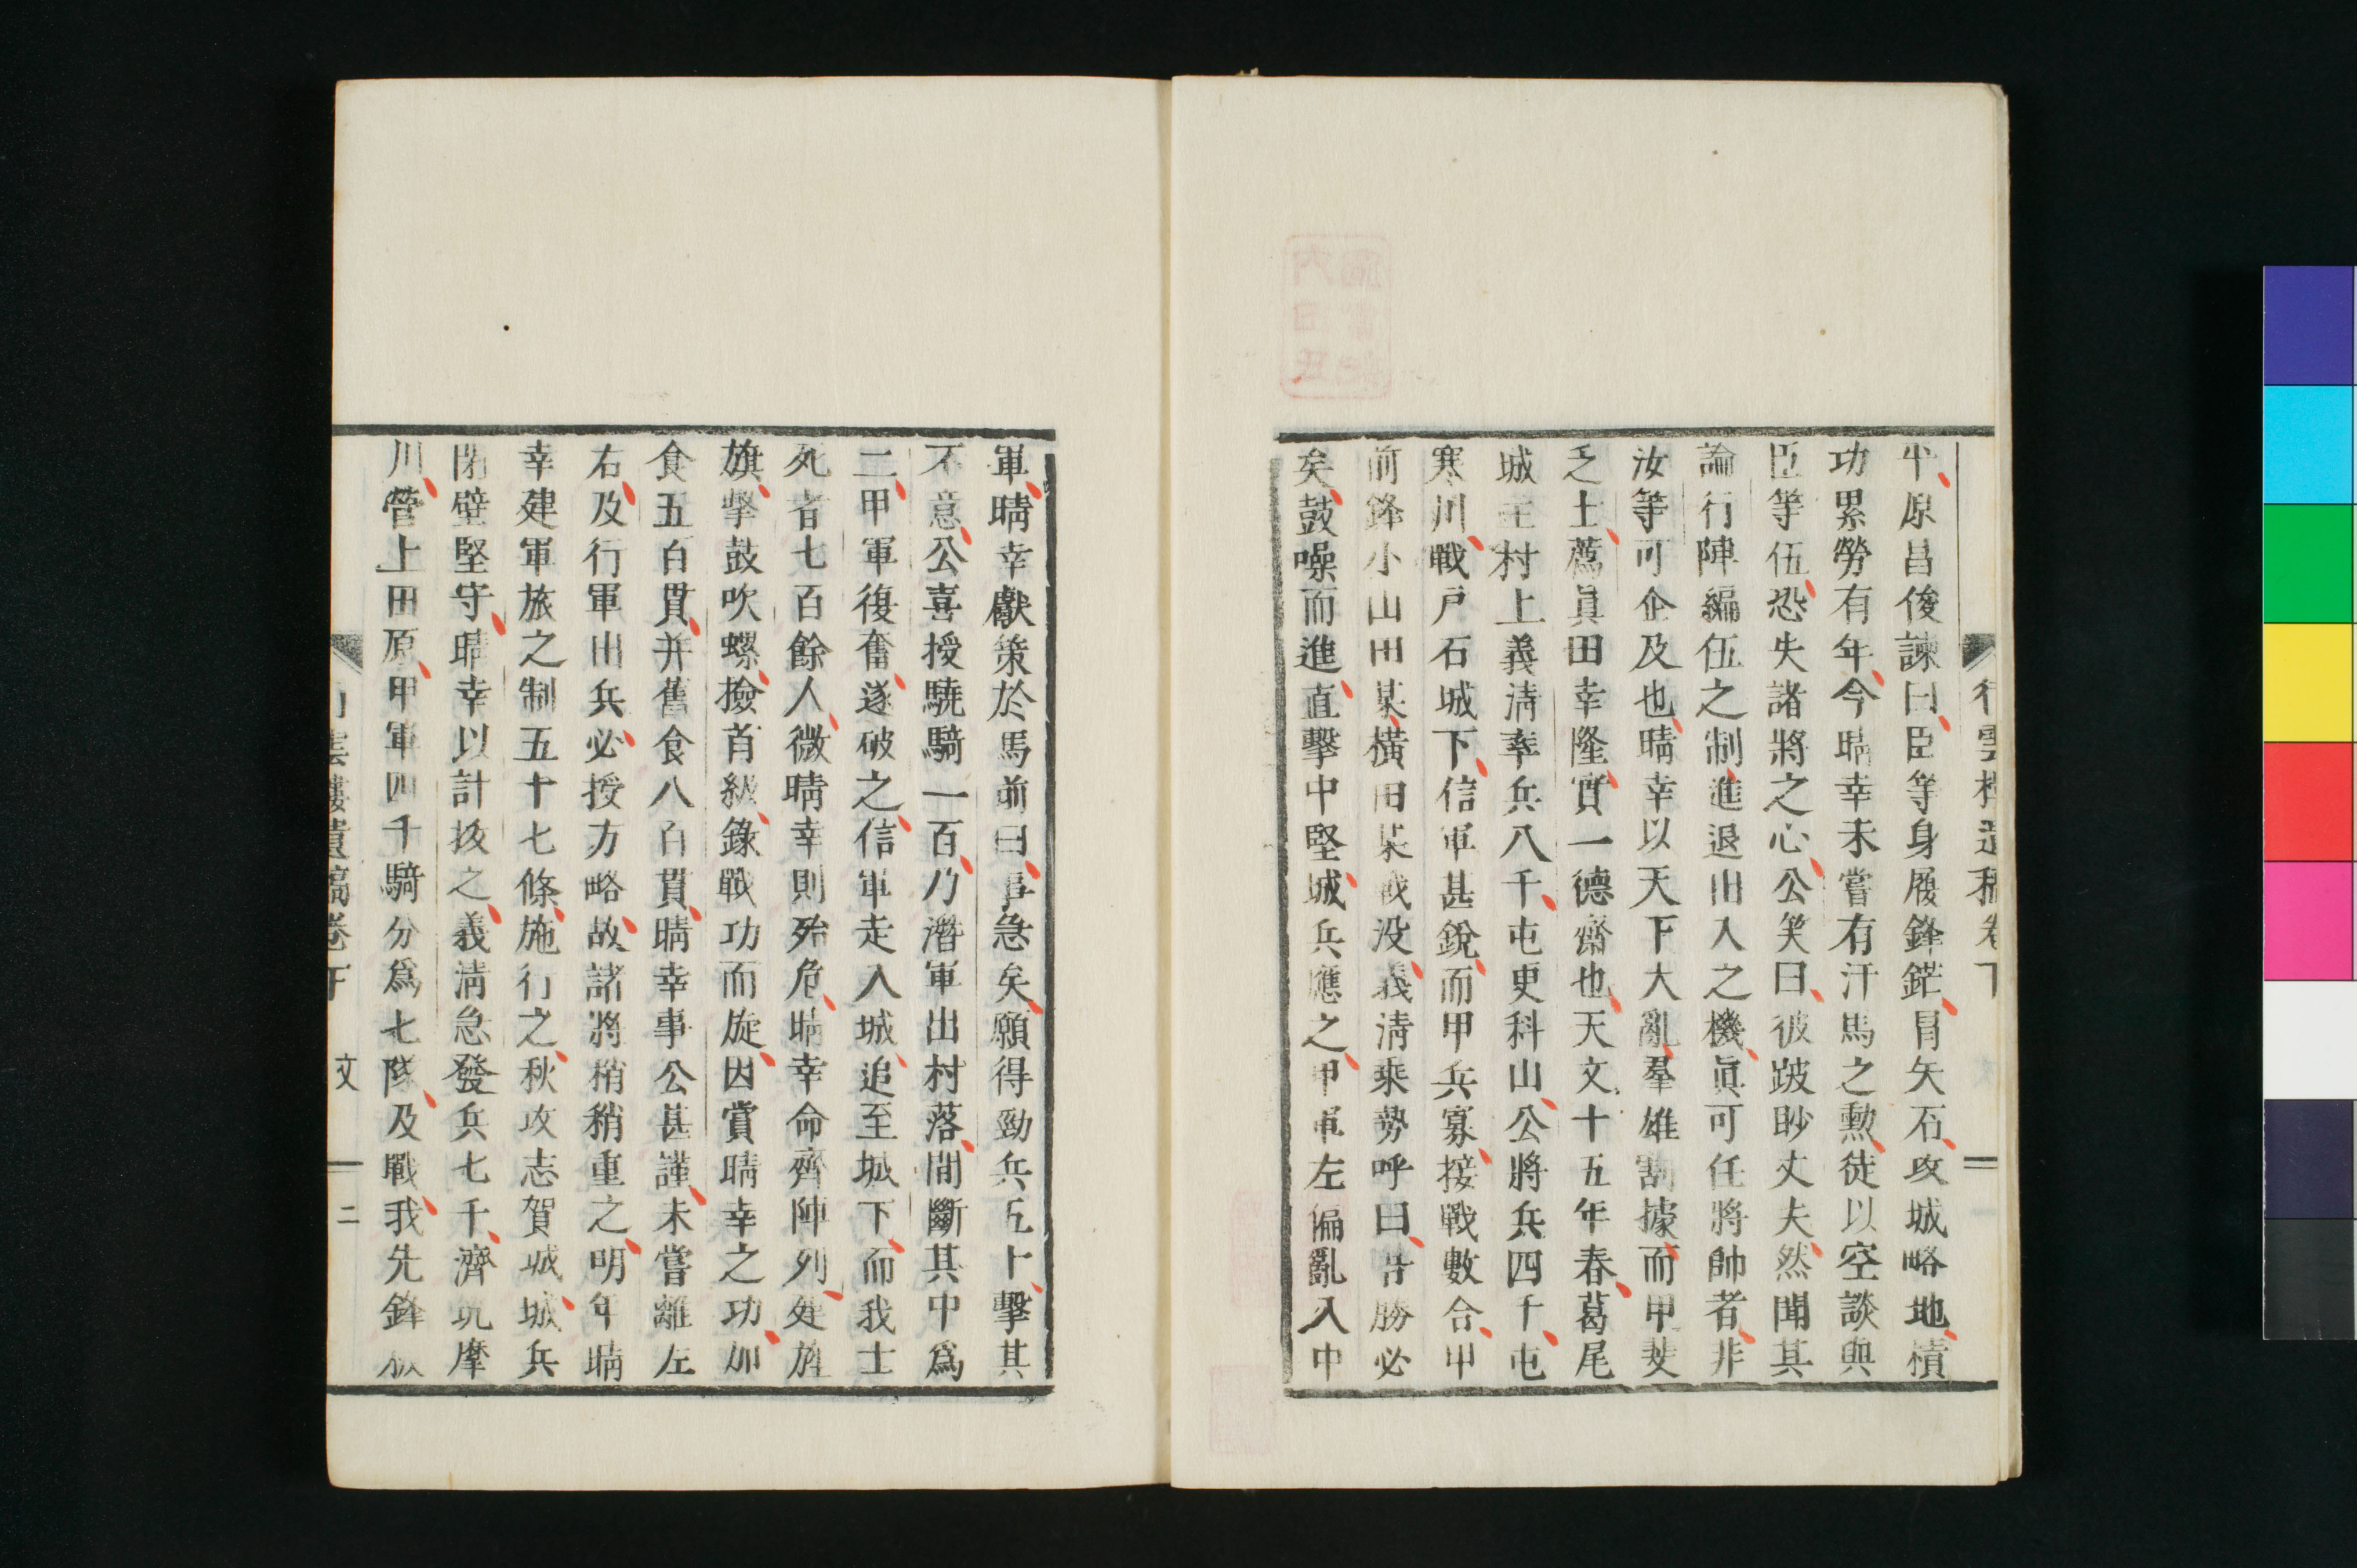 行雲樓遺稿卷下
平原昌俊諫曰臣等身履鋒鋩冒矢石攻城略地積
功累勞有年今晴幸未嘗有汗馬之勲徒以空談與
臣等伍恐失諸將之心公笑曰彼跛眇丈夫然聞其
論行陣編伍之制進退出入之機眞可任將帥者非
汝等可企及也晴幸以天下大亂羣雄割據而甲斐
乏士薦眞田幸隆實一德齋也天文十五年春葛尾
城主村上義淸率兵八千屯更科山公將兵四千屯
寒川戰戸石城下信軍甚銳而甲兵寡接戰數合甲
前鋒小山田某橫田某戰没義淸乘勢呼曰吾勝必
矣鼓噪而進直擊中堅城兵應之甲軍左偏亂入中
軍晴幸獻策於馬前曰事急矣願得勁兵五十擊其
不意公喜授驍騎一百乃潛軍出村落間斷其中爲
二甲軍復奮遂破之信軍走入城追至城下而我士
死者七百餘人微晴幸則殆危晴幸命齊陣列建旌
旗擊鼓吹螺撿首級錄戰功而旋因賞晴幸之功加
食五百貫并舊食八百貫晴幸事公甚謹未嘗離左
右及行軍出兵必授方略故諸將稍稍重之明年晴
幸建軍旅之制五十七條施行之秋攻志賀城城兵
閉壁堅守晴幸以計拔之義淸急發兵七千濟筑摩
川營上田原甲軍四千騎分爲七隊及戰我先鋒板
行雲樓遺稿卷下 文 二